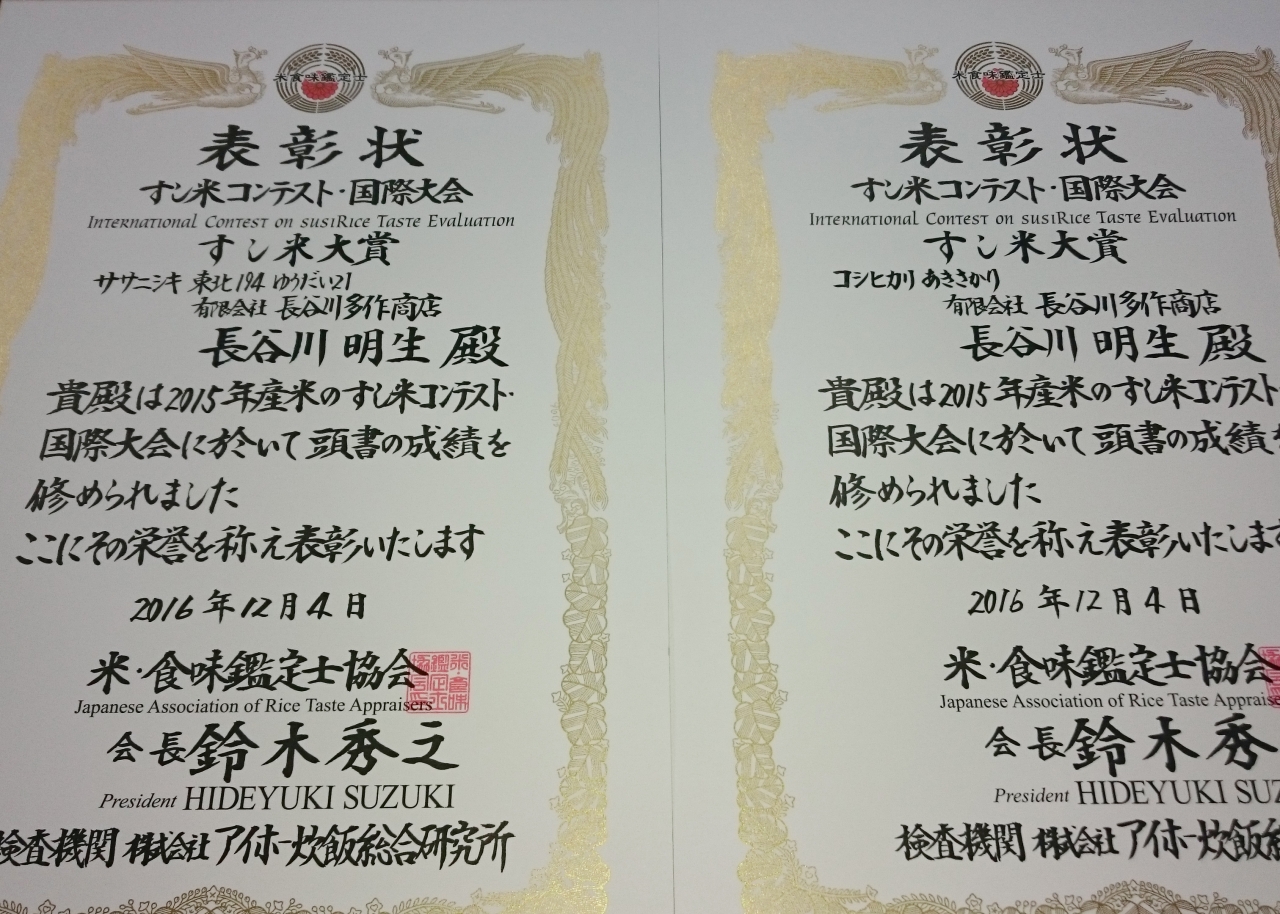 米食味鑑定士
表彰状
すし米コンテスト・国際大会
International Contest on susiRice Taste Evaluation
すし米大賞
ササニシキ 東北194 ゆうだい21
有限会社 長谷川多作商店
長谷川 明生 殿
貴殿は2015年産米のすし米コンテスト・
国際大会に於いて頭書の成績を
修められました
ここにその栄誉を称え表彰いたします
2016年12月4日
米・食味鑑定士協会
Japanese Association of Rice Taste Appraisers
会長 鈴木秀之
President HIDEYUKI SUZUKI
検査機関 株式会社 アイホー炊飯総合研究所
米食味鑑定士
表彰状
すし米コンテスト・国際大会
International Contest on susiRice Taste Evaluation
すし米大賞
コシヒカリ あきさかり
有限会社 長谷川多作商店
長谷川 明生 殿
貴殿は2015年産米のすし米コンテスト
国際大会に於いて頭書の成績を
修められました
ここにその栄誉を称え表彰いたします
2016年12月4日
米・食味鑑定士協会
Japanese Association of Rice Taste Appraise
会長 鈴木秀
President HIDEYUKI SUZ
検査機関 株式会社 アイホー炊飯総